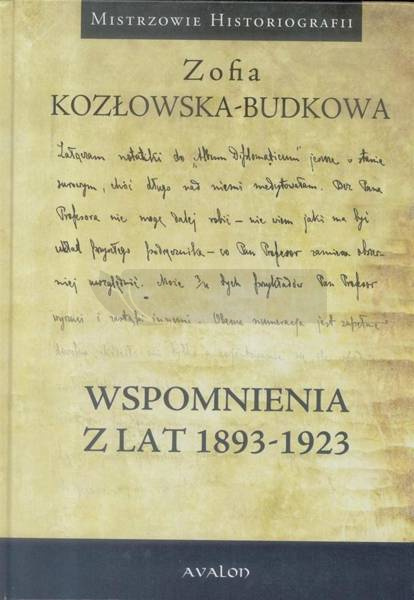 Mistrzowie Historiografii
Zofia
KOZŁOWSKA-BUDKOWA
Załączam notatki do „Album Diplomaticum" jeszcze w stanie
surowym, choć długo nad niemi medytowałam. Bez Pana
Profesora nie mogę dalej robić – nie wiem jaki ma być
układ przyszłego podręcznika – co Pan Profesor zamierza obszer-
niej uwzględnić. Może 3/4 tych przykładów Pan Profesor
wyrzuci i zastąpi innemi. Obecna numeracja jest zupełnie
WSPOMNIENIA
Z LAT 1893-1923
AVALON